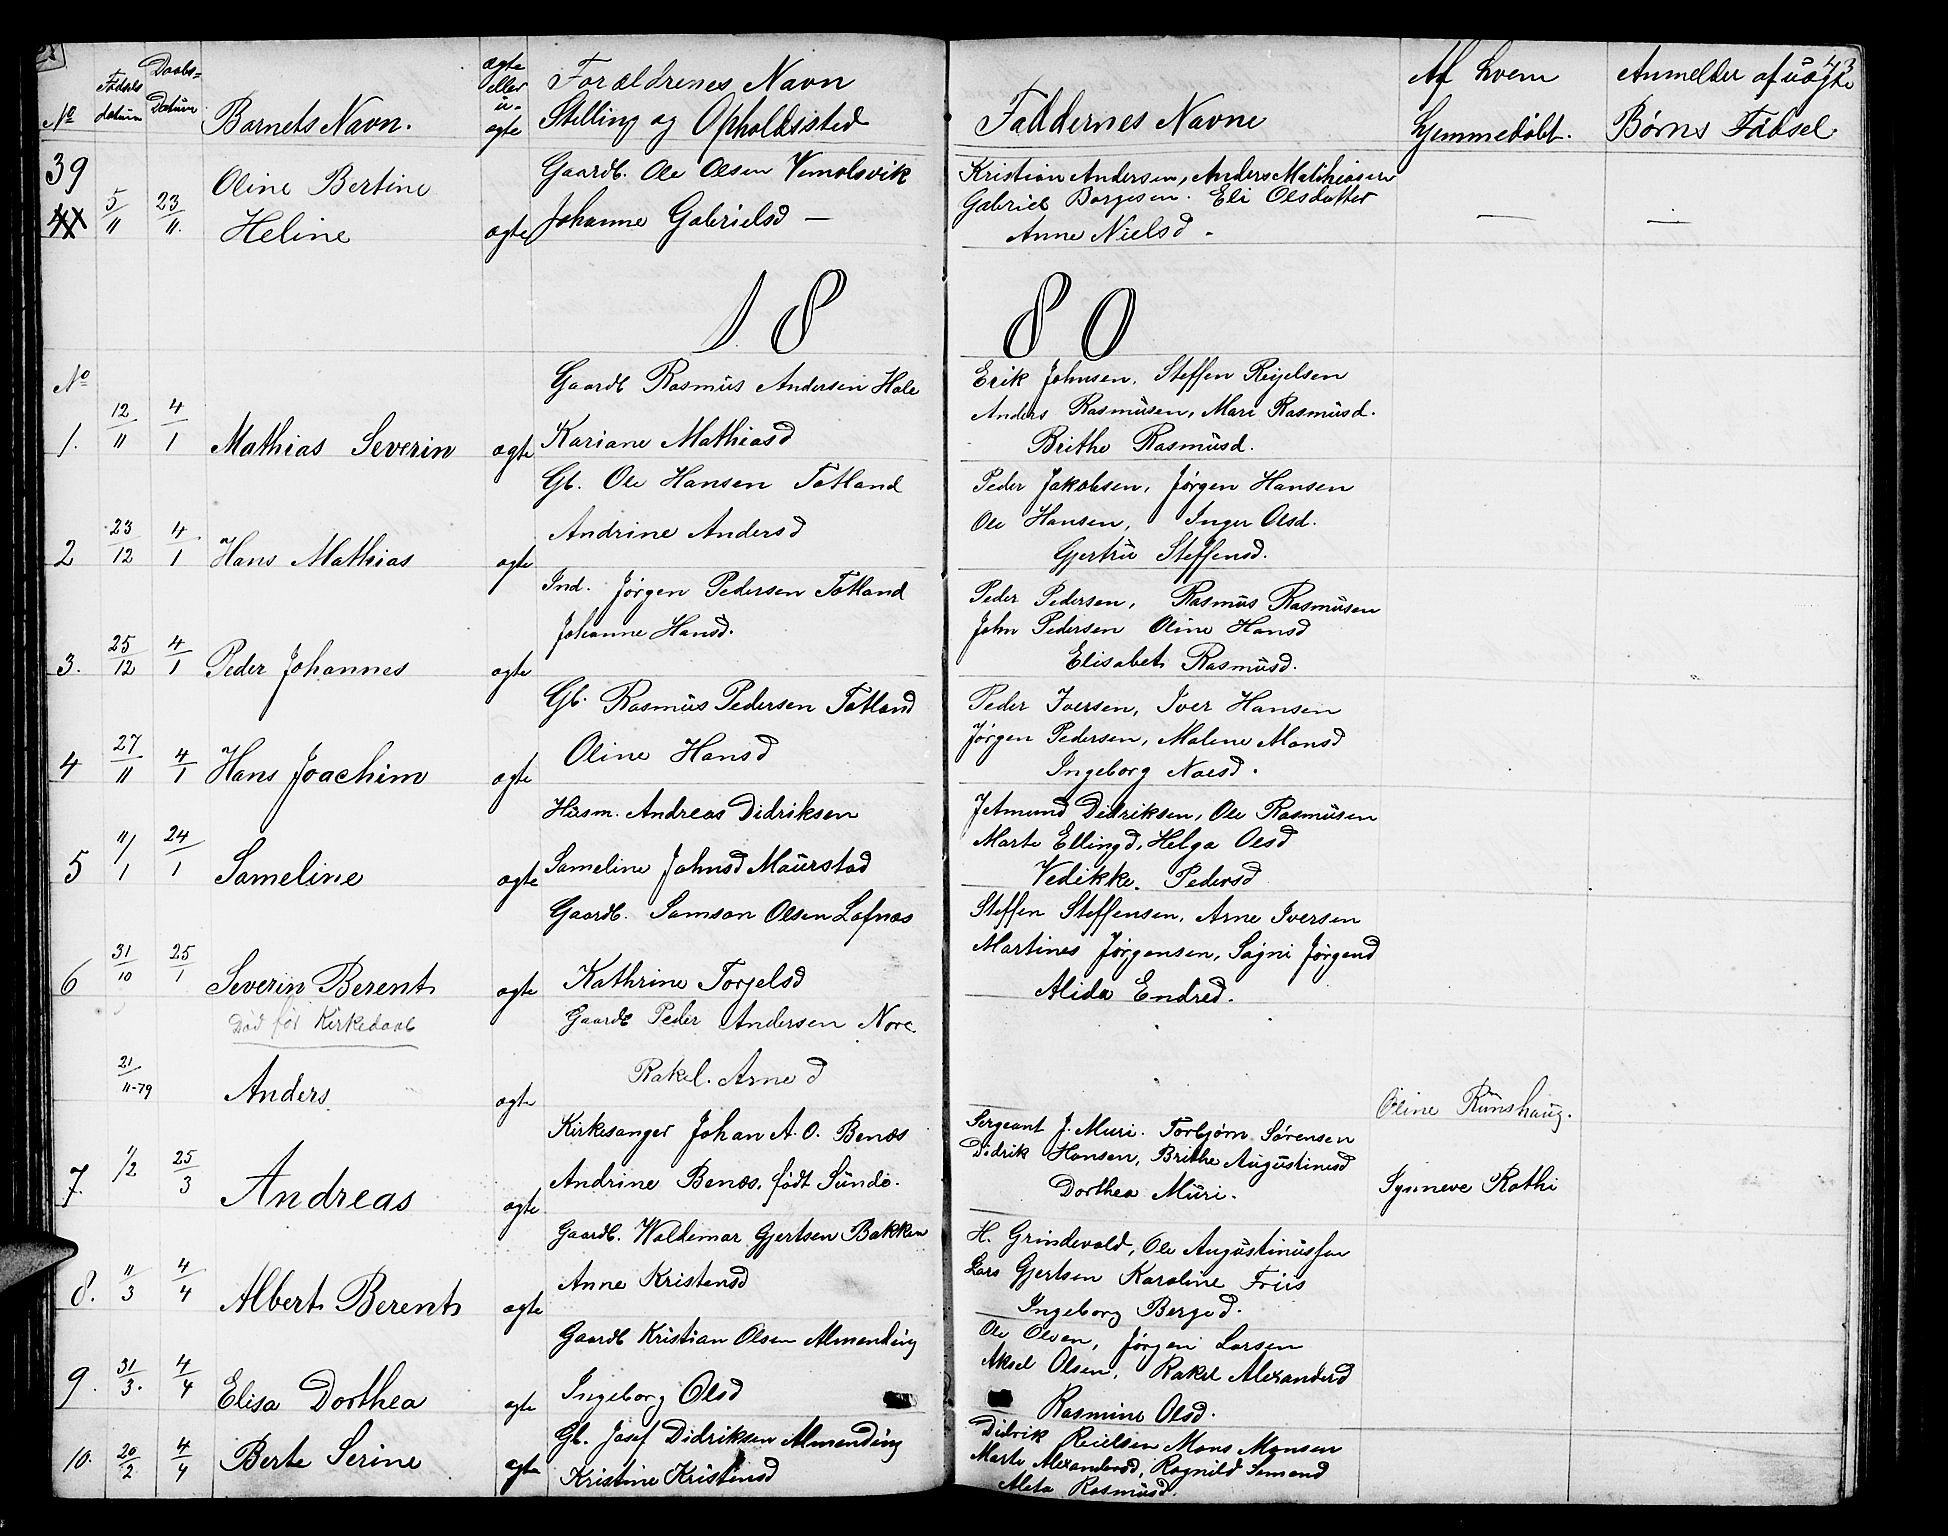 43
No Fødsels datum Daabs= Datum Barnets Navn. ægte eller u- ægte Forældrenes Navn Stilling og Opholdssted Faddernes Navne Af hvem hjemmedøbt. Anmelder af uægte Børns Fødsel
39 Oline Bertine Gaardb. Ole Olsen Vemelsvik Kristian Andersen, Anders Mathiasen
41 5/11 23/11. Heline ægte Johanne Gabrielsd — Gabriel Borgesen. Eli Olsdatter — —
Anne Nielsd -
1880
No Gaardb Rasmus Andersen Hole Erik Johnsen, Steffen Reijelsen
1. 12/11 4/1 Mathias Severin ægte Kariane Mathiasd Anders Rasmusen, Mari Rasmusd.
Brithe Rasmusd.
Gb. Ole Hansen Totland Peder Jakobsen, Jørgen Hansen
2 23/12 4/1 Hans Mathias ægte Andrine Andersd Ole Hansen, Inger Olsd.
Gjertru Steffensd.
Ind. Jørgen Pedersen Totland Peder Pedersen, Rasmus Rasmusen
3. 25/12 4/1 Peder Johannes ægte Johanne Hansd. John Pedersen Oline Hansd
Elisabet Rasmusd.
Gb. Rasmus Pedersen Totland Peder Iversen, Iver Hansen
4 27/11 4/1 Hans Joachim ægte Oline Hansd Jørgen Pedersen, Malene Monsd
Ingeborg Naesd.
Husm. Andreas Didriksen Jetmund Didriksen, Ole Rasmusen
5 11/1 24/1 Sameline ægte Sameline Johnsd Maurstad Marte Ellingd, Helga Olsd
Vedikke Pedersd
Gaardb. Samson Olsen Lofnæs Steffen Steffensen, Arne Iversen
6 31/10 25/1 Severin Berent ægte Kathrine Torjelsd Martines Jørgensen, Sagni Jørgend
Alida Endred.
Død før Kirkedaab Gaardb Peder Andersen Nore
21/11-79 Anders ægte Rakel. Arned Oline Runshaug.
Kirkesanger Johan A. O. Benæs Sergeant J. Muri. Torbjørn Sørensen
7. 1/2 25/3 Andreas ægte Andrine Benæs. født Sunde. Didrik Hansen, Brithe Augustinusd Synneve Rathi
Dorthea Muri.
Gaardb. Waldemar Gjertsen Bakken H. Grindevold, Ole Augustinussen
8. 11/3 4/4 Albert Berent ægte Anne Kristensd Lars Gjertsen Karoline Friis
Ingeborg Berged.
Gaardb Kristian Olsen Almending Ole Olsen, Jørgen Larsen
9. 31/3. 4/4 Elisa Dorthea ægte Ingeborg Olsd Aksel Olsen, Rakel Alexanderd
Rasmine Olsd.
10. 20/2 4/4 Berte Serine ægte Gb. Josef Didriksen Almending Didrik Reielsen Mons Monsen
Kristine Kristensd Marte Alexandersd, Ragnild Semond
Aleta Rasmusd.